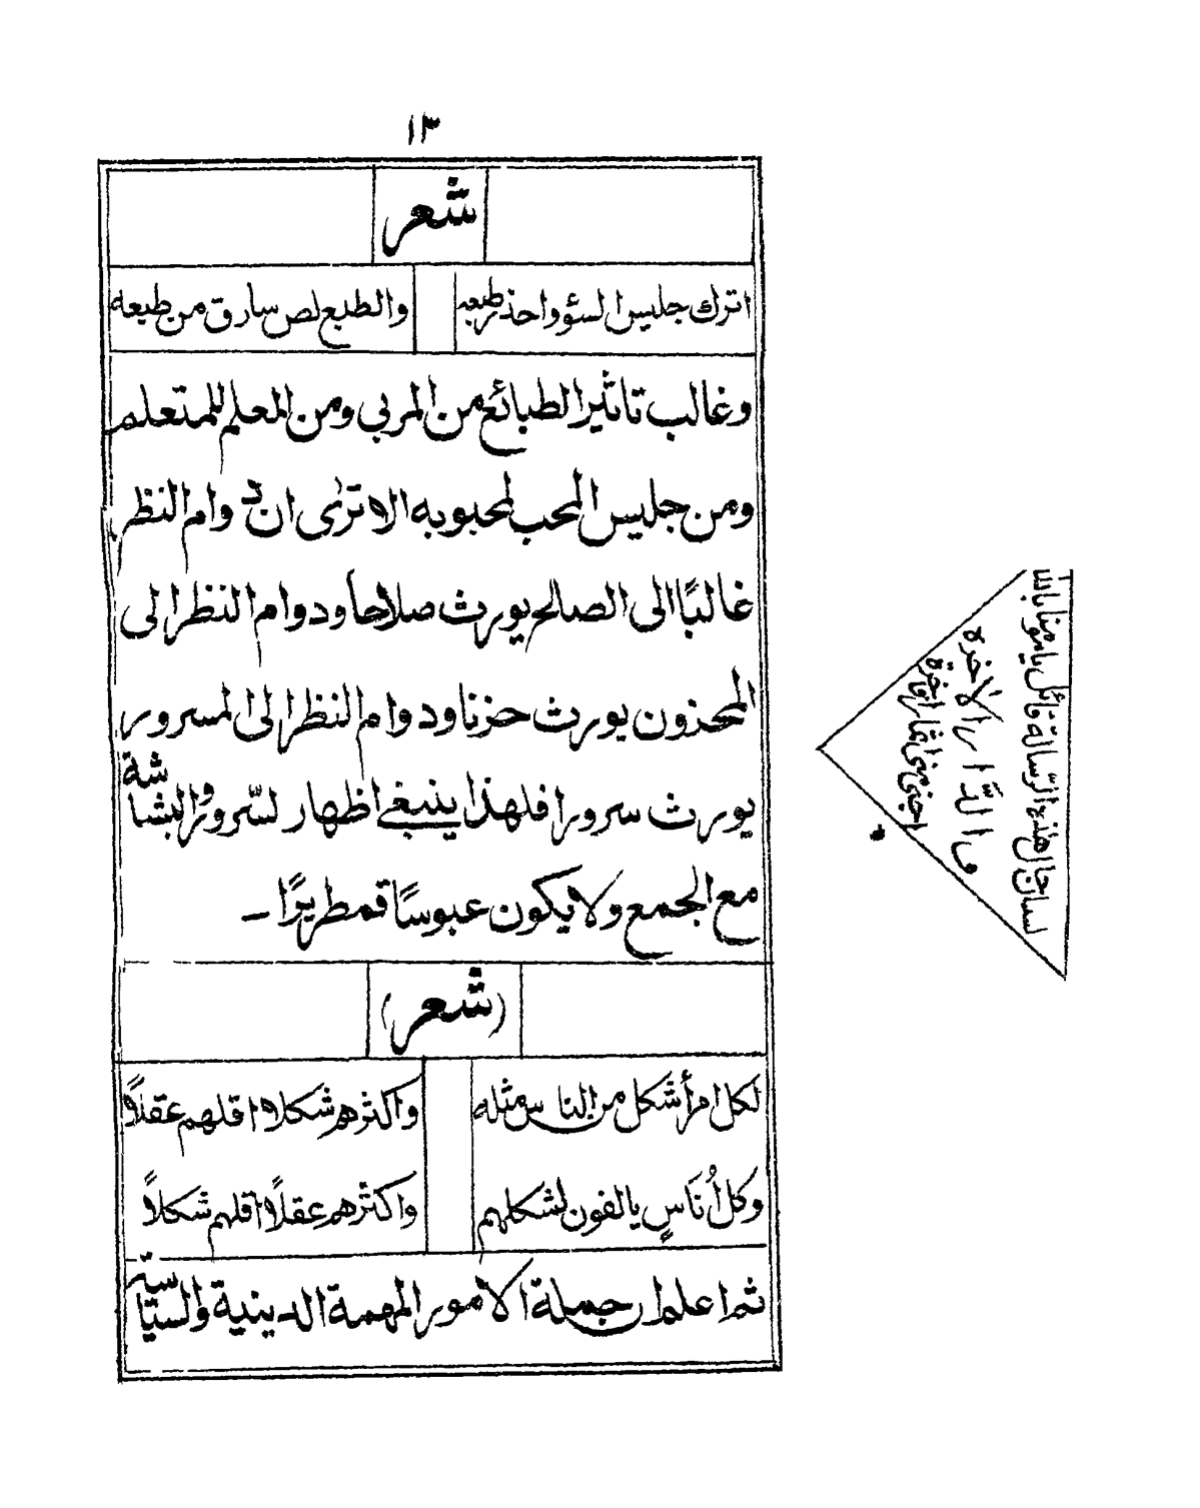 ١٣
شعر
اترك جليس السؤ واحذر طبعه والطبع لص سارق من طبعه
وغالب تاثير الطبائع من المربي ومن المعلم للمتعلم
ومن جليس المحب لمحبوبه الا ترى ان دوام النظر
غالبًا الى الصالح يورث صلاحا ودوام النظر الى
المحزون يورث حزنا ودوام النظر الى المسرور
يورث سرورا فلهذا ينبغي اظهار السّرور والبشاشة
مع الجمع ولا يكون عبوسًا قمطريرًا -
(شعر)
لكل امرأ شكل من الناس مثله واكثرهم شكلا اقلهم عقلاً
وكل اُنَاسٍ يالفون لشكلهم واكثرهم عقلاً اقلهم شكلاً
ثم اعلم ان جملة الامور المهمة الدينية والسيّاسية
لسان حال هذه الرّسالة قائل يا مومنا بالله
والدّار الاخره
اجتني مني اثمار الفاخرة